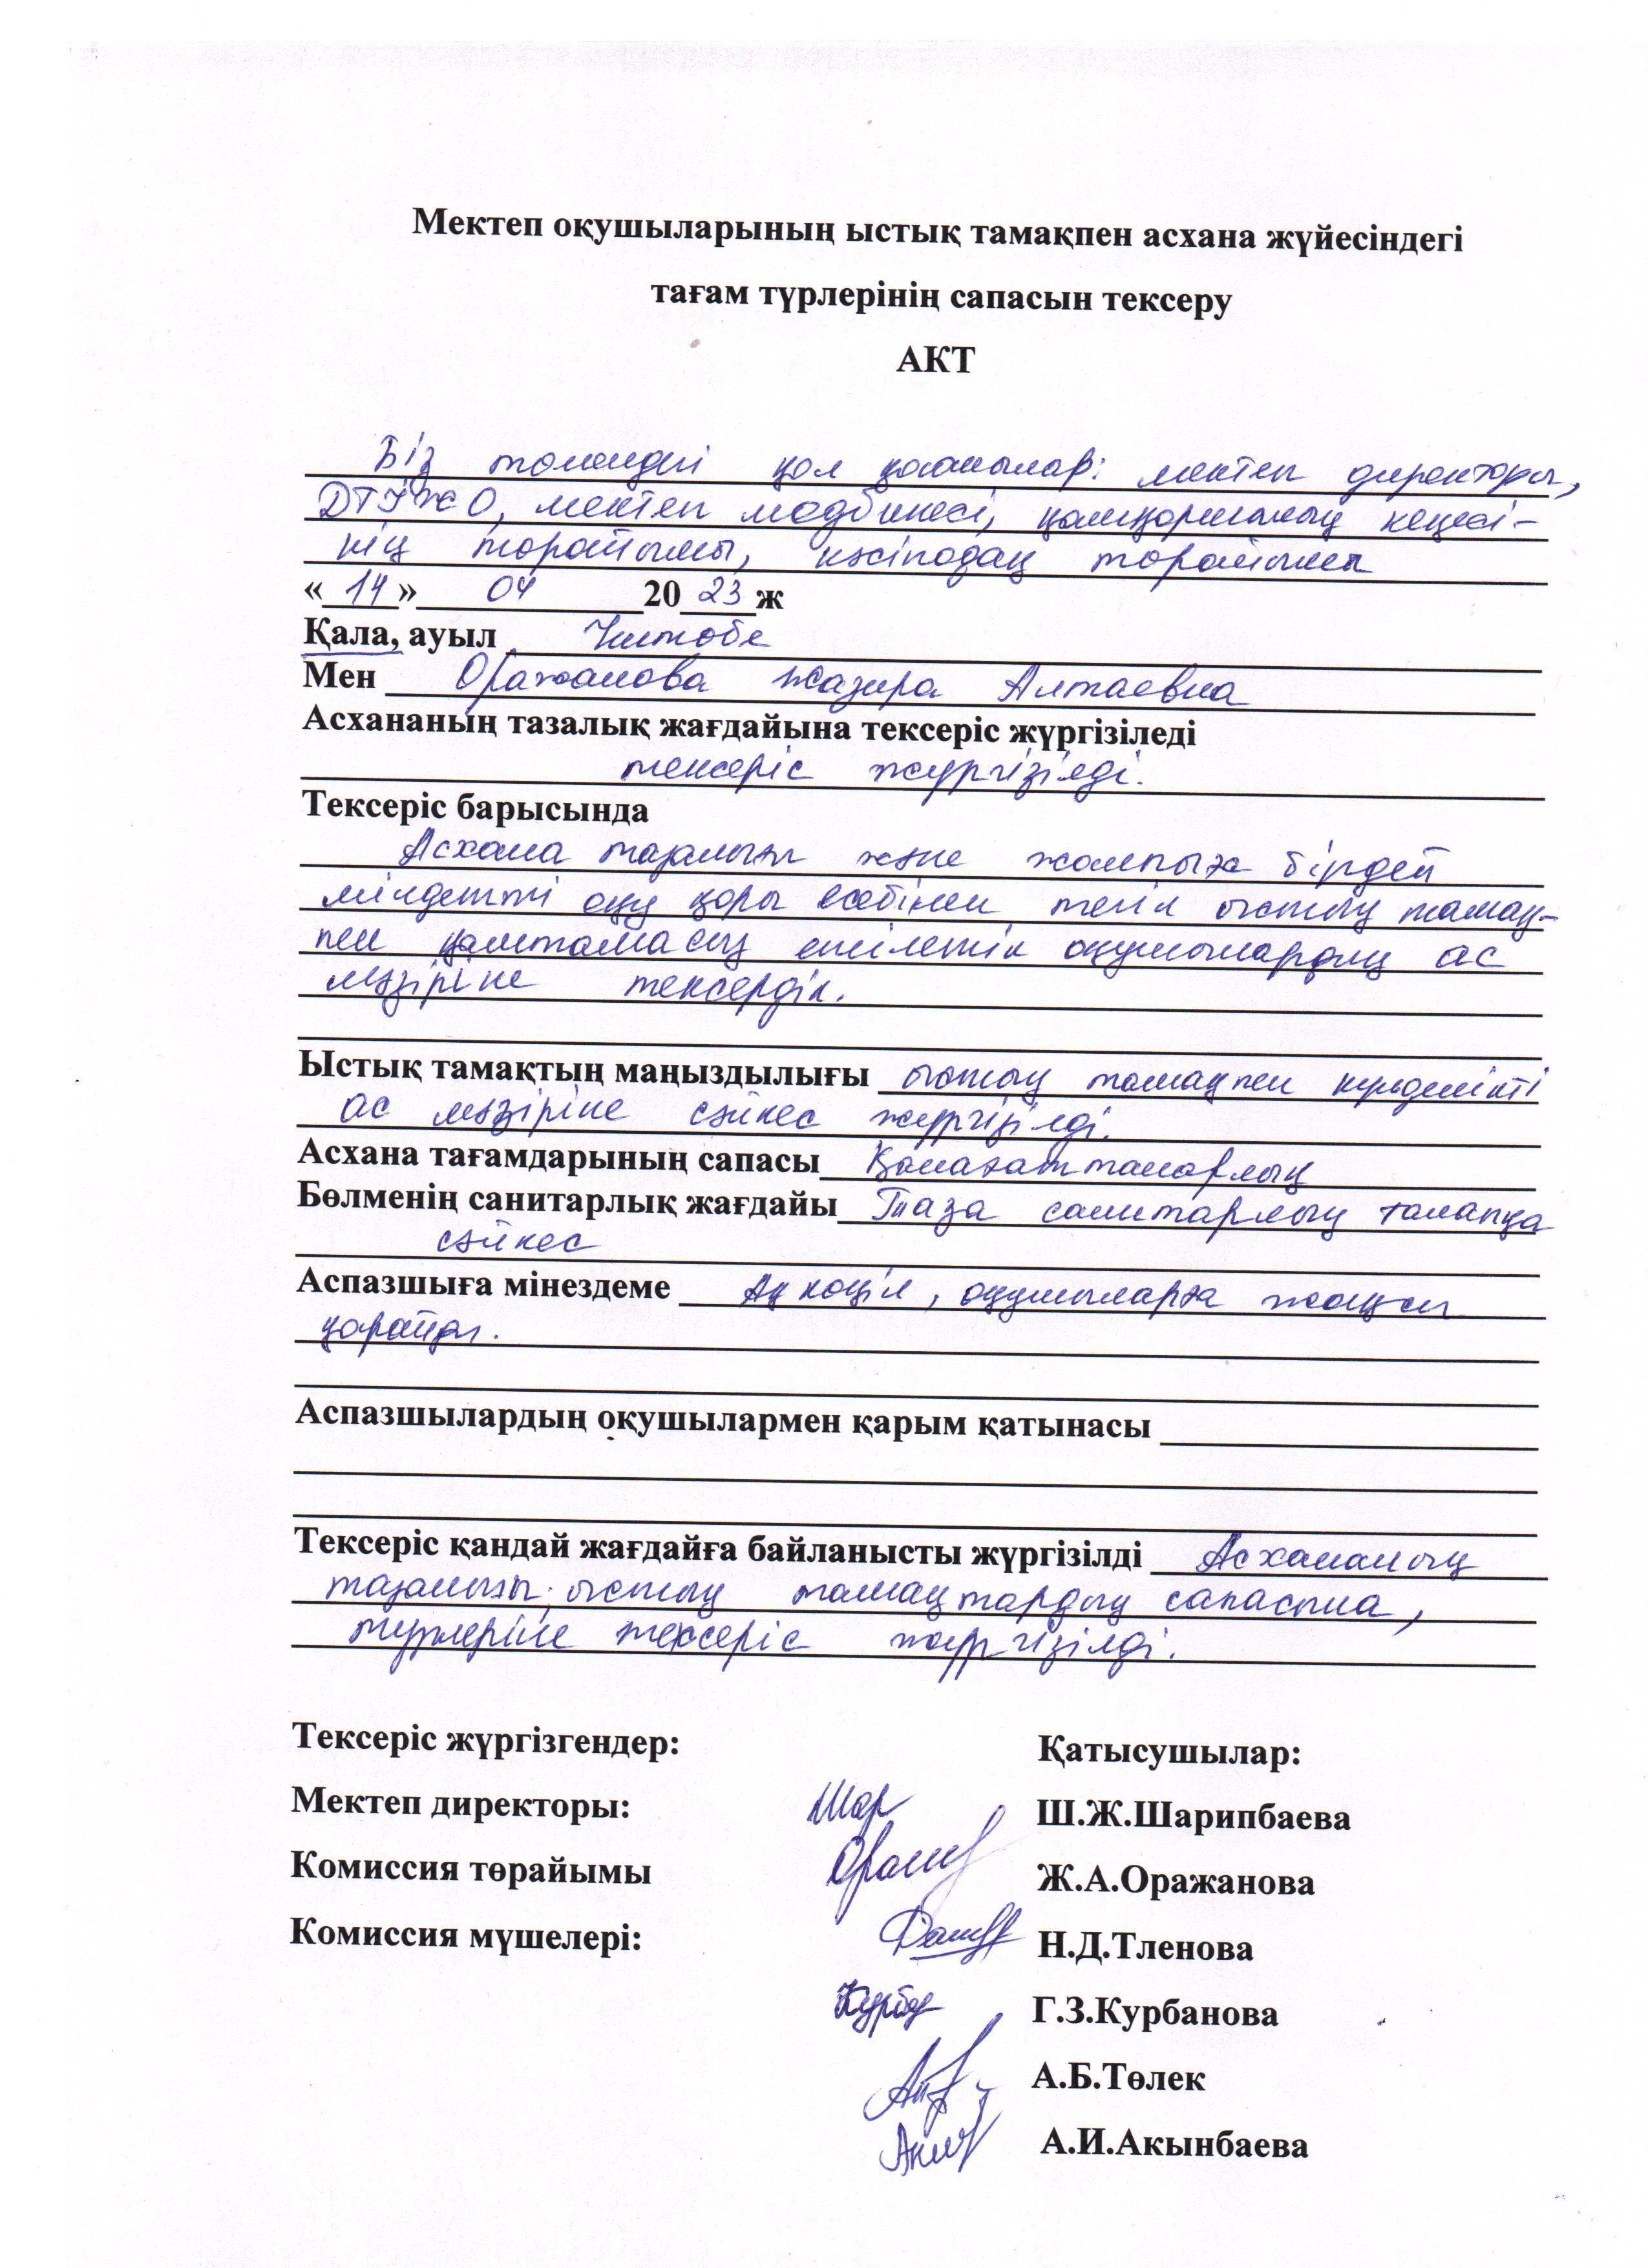 Мектеп оқушыларының ыстық тамақпен асхана жүйесіндегі
тағам түрлерінің сапасын тексеру
АКТ
Біз төмендегі қол қоюшылар: мектеп директоры,
ДТІЖО, мектеп медбикесі, қамқоршылық кеңесі-
нің төрайымы, кәсіподақ төрайымы
«14» 04 2023ж
Қала, ауыл
Мен Оражанова Жазира Алтаевна
Асхананың тазалық жағдайына тексеріс жүргізіледі
тексеріс жүргізілді.
Тексеріс барысында
Асхана тазалығы және жалпыға бірдей
міндетті оқу қоры есебінен тегін ыстық тамақ-
пен қамтамасыз етілетін оқушылардың ас
мәзіріне тексердік.
Ыстық тамақтың маңыздылығы ыстық тамақпен күнделікті
ас мәзіріне сәйкес жүргізілді.
Асхана тағамдарының сапасы Қанағаттанарлық
Бөлменің санитарлық жағдайы Таза санитарлық талапқа
сәйкес
Аспазшыға мінездеме Ақ көңіл, оқушыларға жақсы
қарайды.
Аспазшылардың оқушылармен қарым қатынасы
Тексеріс қандай жағдайға байланысты жүргізілді Асхананың
тазалығы, ыстық тамақтардың сапасына,
түрлеріне тексеріс жүргізілді.
Тексеріс жүргізгендер: Қатысушылар:
Мектеп директоры: Шар Ш.Ж.Шарипбаева
Комиссия төрайымы Ж.А.Оражанова
Комиссия мүшелері: Н.Д.Тленова
Г.З.Курбанова
А.Б.Төлек
А.И.Акынбаева